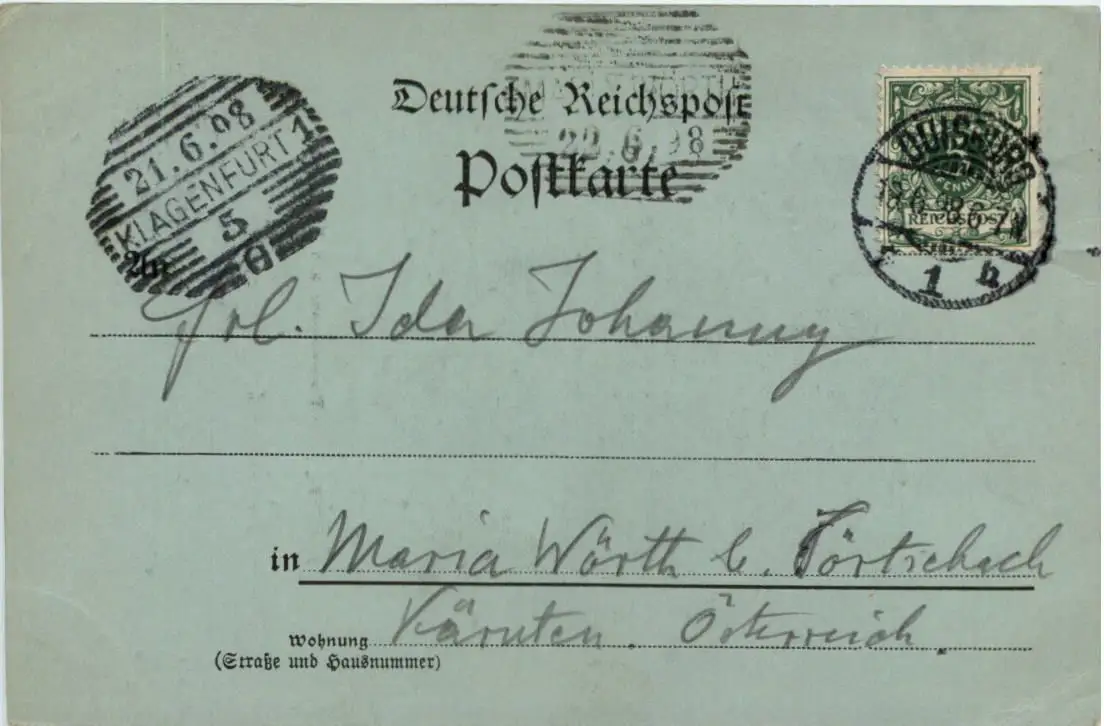 Deutsche Reichspost
22.6.98
Postkarte
21.6.98
KLAGENFURT 1
5
An
REICHSPOST
DUISBURG
18.6.98.6-7N
1 h
Frl. Ida Johanny
in Maria Wörth b. Pörtschach
Wohnung Kärnten. Österreich.
(Straße und Hausnummer)